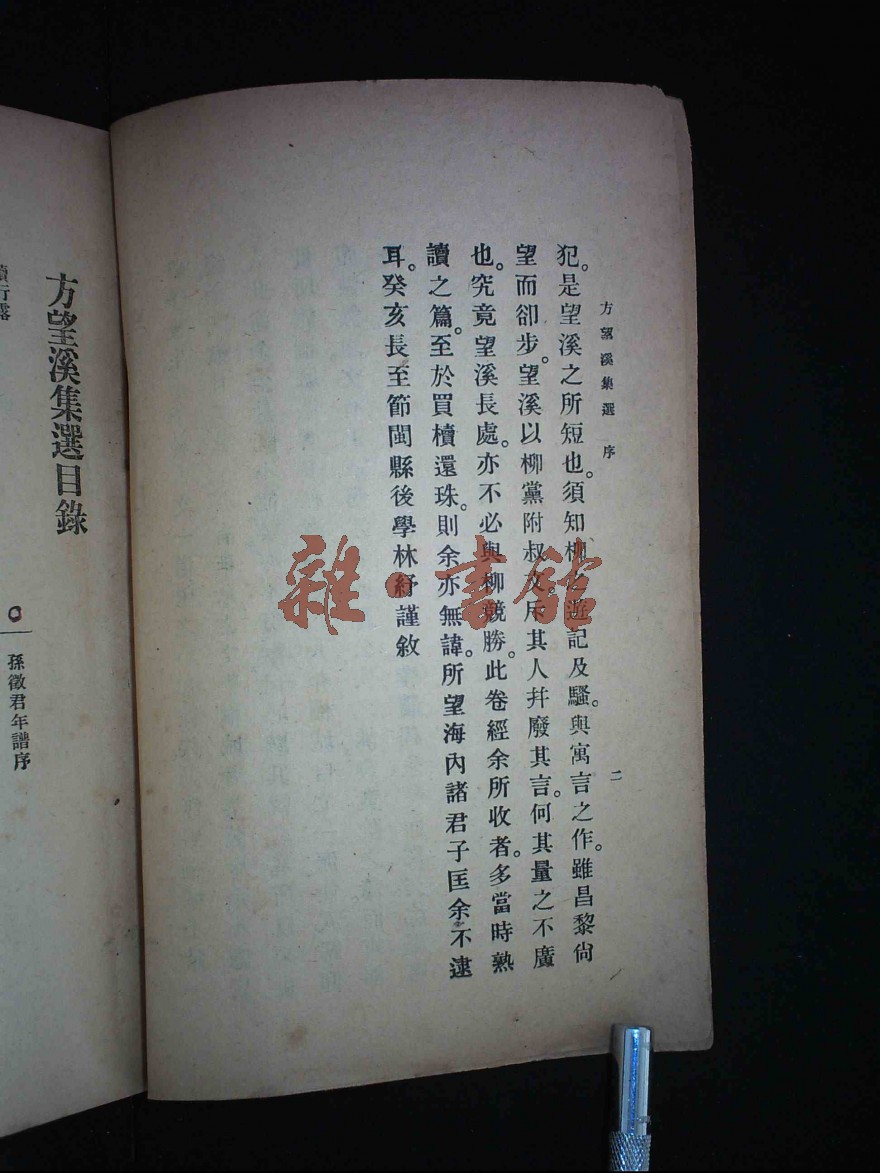 方望溪集選 序
二
犯。是望溪之所短也。須知柳之遊記及騷。與寓言之作。雖昌黎尙
望而卻步。望溪以柳黨附叔文。斥其人幷廢其言。何其量之不廣
也。究竟望溪長處。亦不必與柳競勝。此卷經余所收者。多當時熟
讀之篇。至於買櫝還珠。則余亦無諱。所望海內諸君子匡余不逮
耳。癸亥長至節閩縣後學林紓謹敘
方望溪集選目錄
孫徵君年譜序
雜·書館